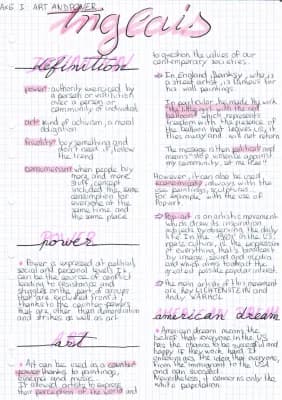 AXE 3 ART AND POWER
Inglais
definition
power: authority exercised by
a person or institution
over a person or
community of individual
art: kind of activism, a moral
obligation
frivolity: buy something and
don't need it, follow
the trend
consumerism: when people buy
more and more
stuff, concept
included this same
consumption for
everyone at the
same time and
the same place
power
Power is expressed at political,
social and personal levels. It
can be the source of conflict
leading to resistance and
struggle on the part of groups
that are excluded from it,
thanks to the counter-powers
that are other than demonstration
and strikes as well as art
art
Art can be used as a counter
power thanks to paintings,
cinema and music.
It allowed artists to expose
their perception of the world and
to question the values of our
contemporary societies.
In England, Banksy, who is
a street artist, is famous for
his wall paintings.
In particular, he made the work
"the little girl with the red
balloon" which represents
freedom with the presence of
the balloon that leaves us, it
flies away and will not return
The message is then political and
means "stop violence against
my community, let me free"
However, it can also be used
economically, always with the
use paintings, sculptures
for example, with the use of
Pop art.
Pop-art is an artistic movement
which draws its inspiration
subjects by observing the daily
life. In the 1960's in the US,
mass culture, is the expression
of everything that's broadcast
by image, sound and media
and which aims to target the
greatest possible popular interest.
The main artists of this movement
are Roy LICHTENSTEIN and
Andy WARHOL
american dream
American dream means the
belief that everyone in the US
has the chance to be successful and
happy if they work hard. It
enlarges the idea that everyone,
from the immigrant to the USA
can succeed.
Nevertheless, it concerns only the
white population.